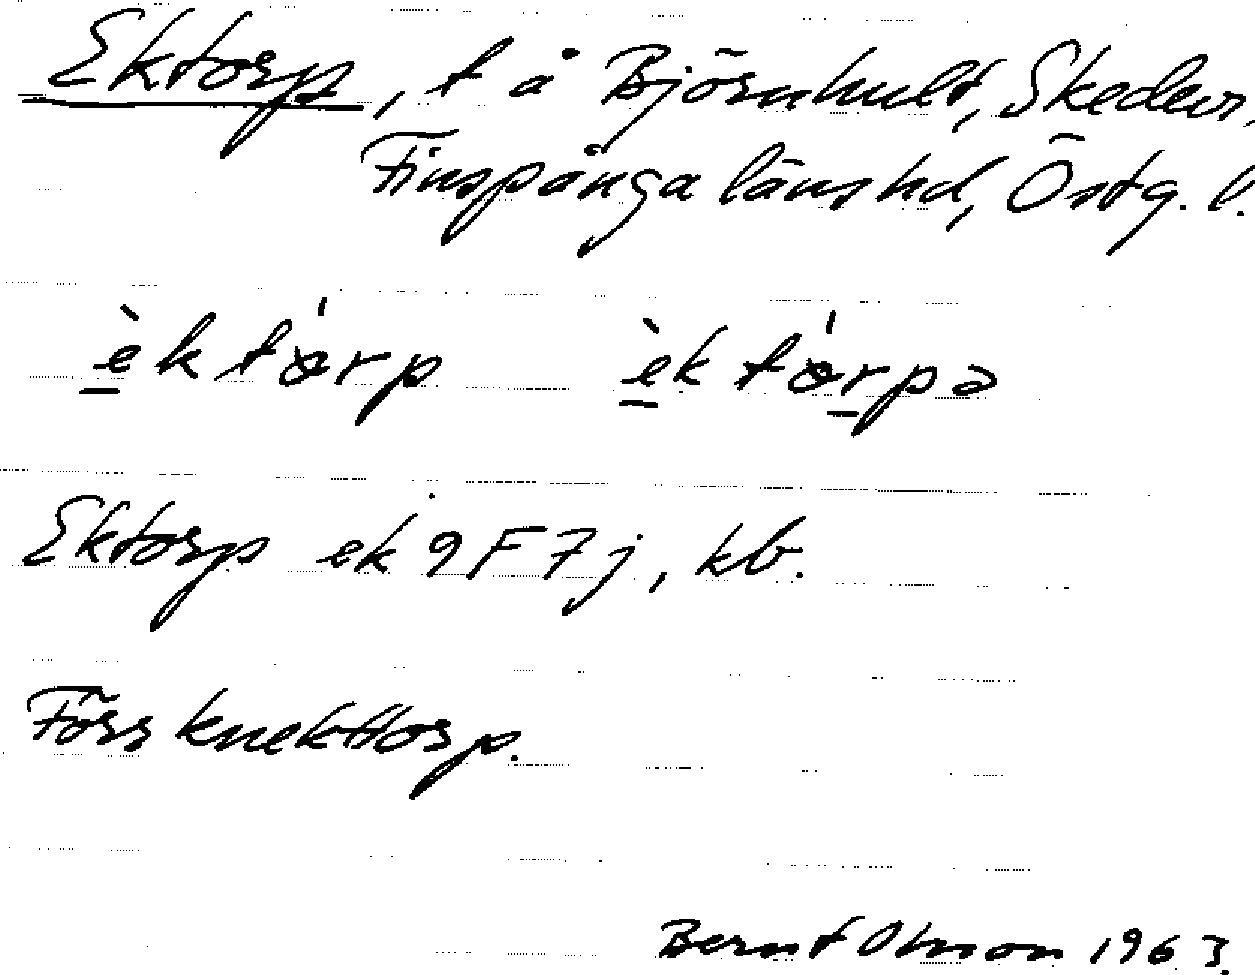 Ektorp, t å Björnhult, Skedevi,
Finspånga länshd, Östg. l.
èktórp èktórpə
Ektorp ek 9F7j, kb.
Förr knekttorp.
Bernt Olsson 1963.